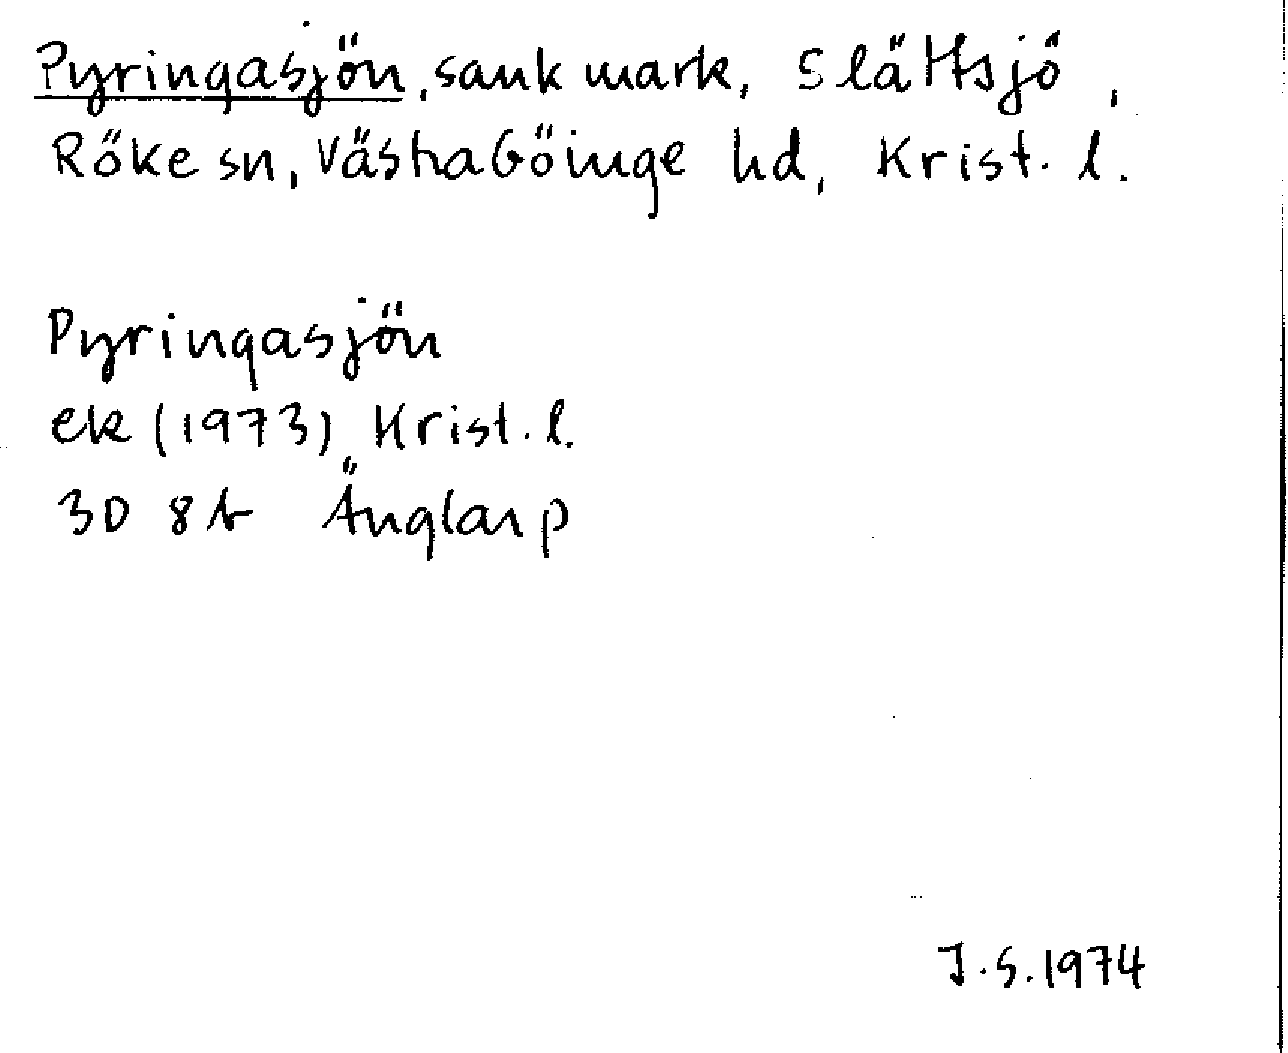 Pyringasjön, sank mark, Slättsjö,
Röke sn, Västra Göinge hd, Krist. l.
Pyringasjön
ek (1973) Krist. l.
3D 8b Änglarp
J.S. 1974